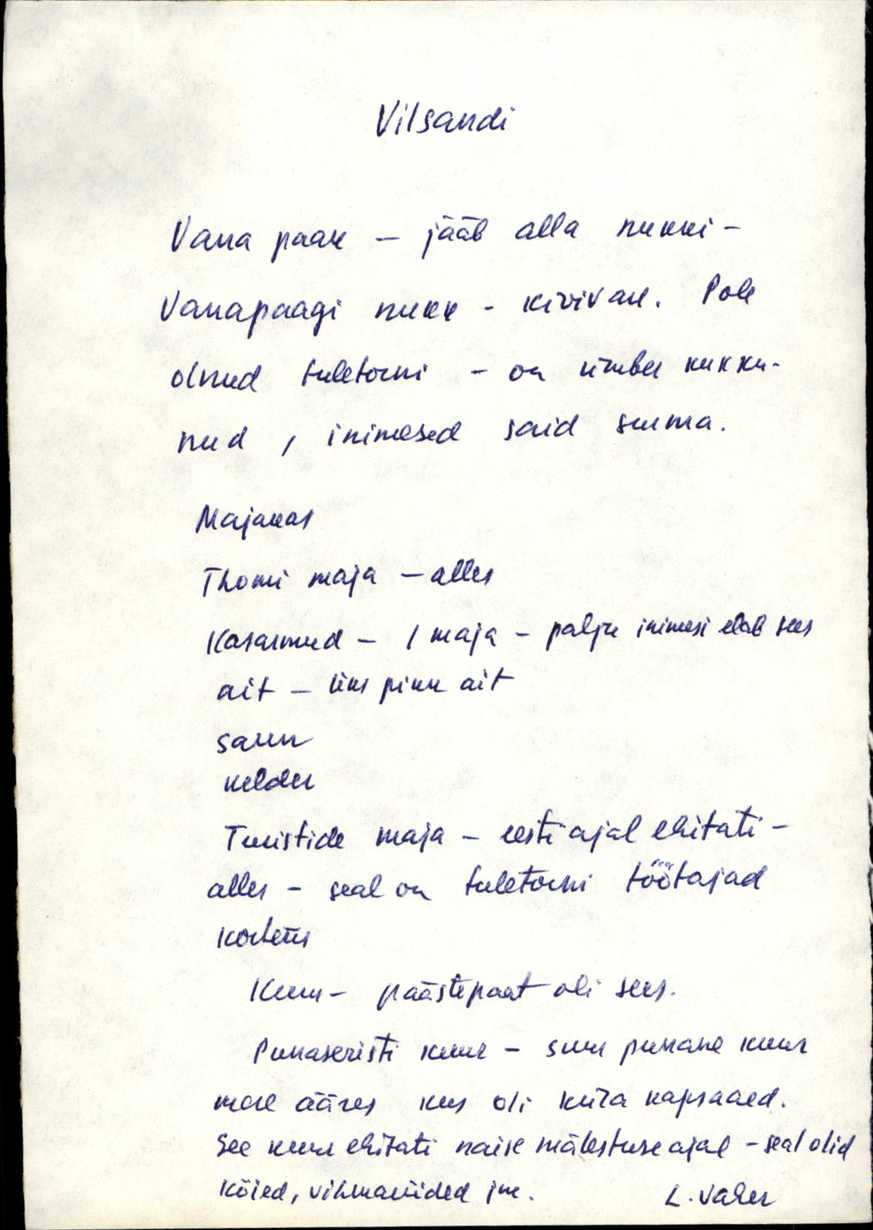 Vilsandi
Vana paak – jääb alla nukki –
Vanapaagi nukk - kivivare. Pole
olnud tuletorni – on ümber kukku-
nud, inimesed said surma.
Majakas
Thomi maja – alles
Kasarmud – 1 maja – palju inimesi elab sees
ait – üks pikk ait
saun
kelder
Turistide maja – eesti ajal ehitati –
alles – seal on tuletorni töötajad
korteris
Kuur – päästepaat oli sees.
Punaseristi kuur – suur punane kuur
mere ääres kus oli küla kapsaaed.
See kuur ehitati naise mälestuse ajal – seal olid
köied, vihmariided jne.
L. Vaher